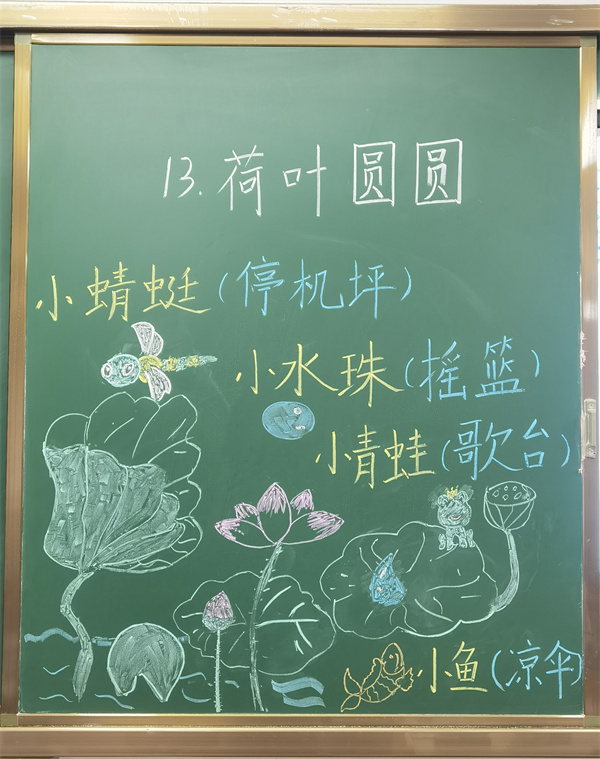 13.荷叶圆圆
小蜻蜓(停机坪)
小水珠(摇篮)
小青蛙(歌台)
小鱼(凉伞)